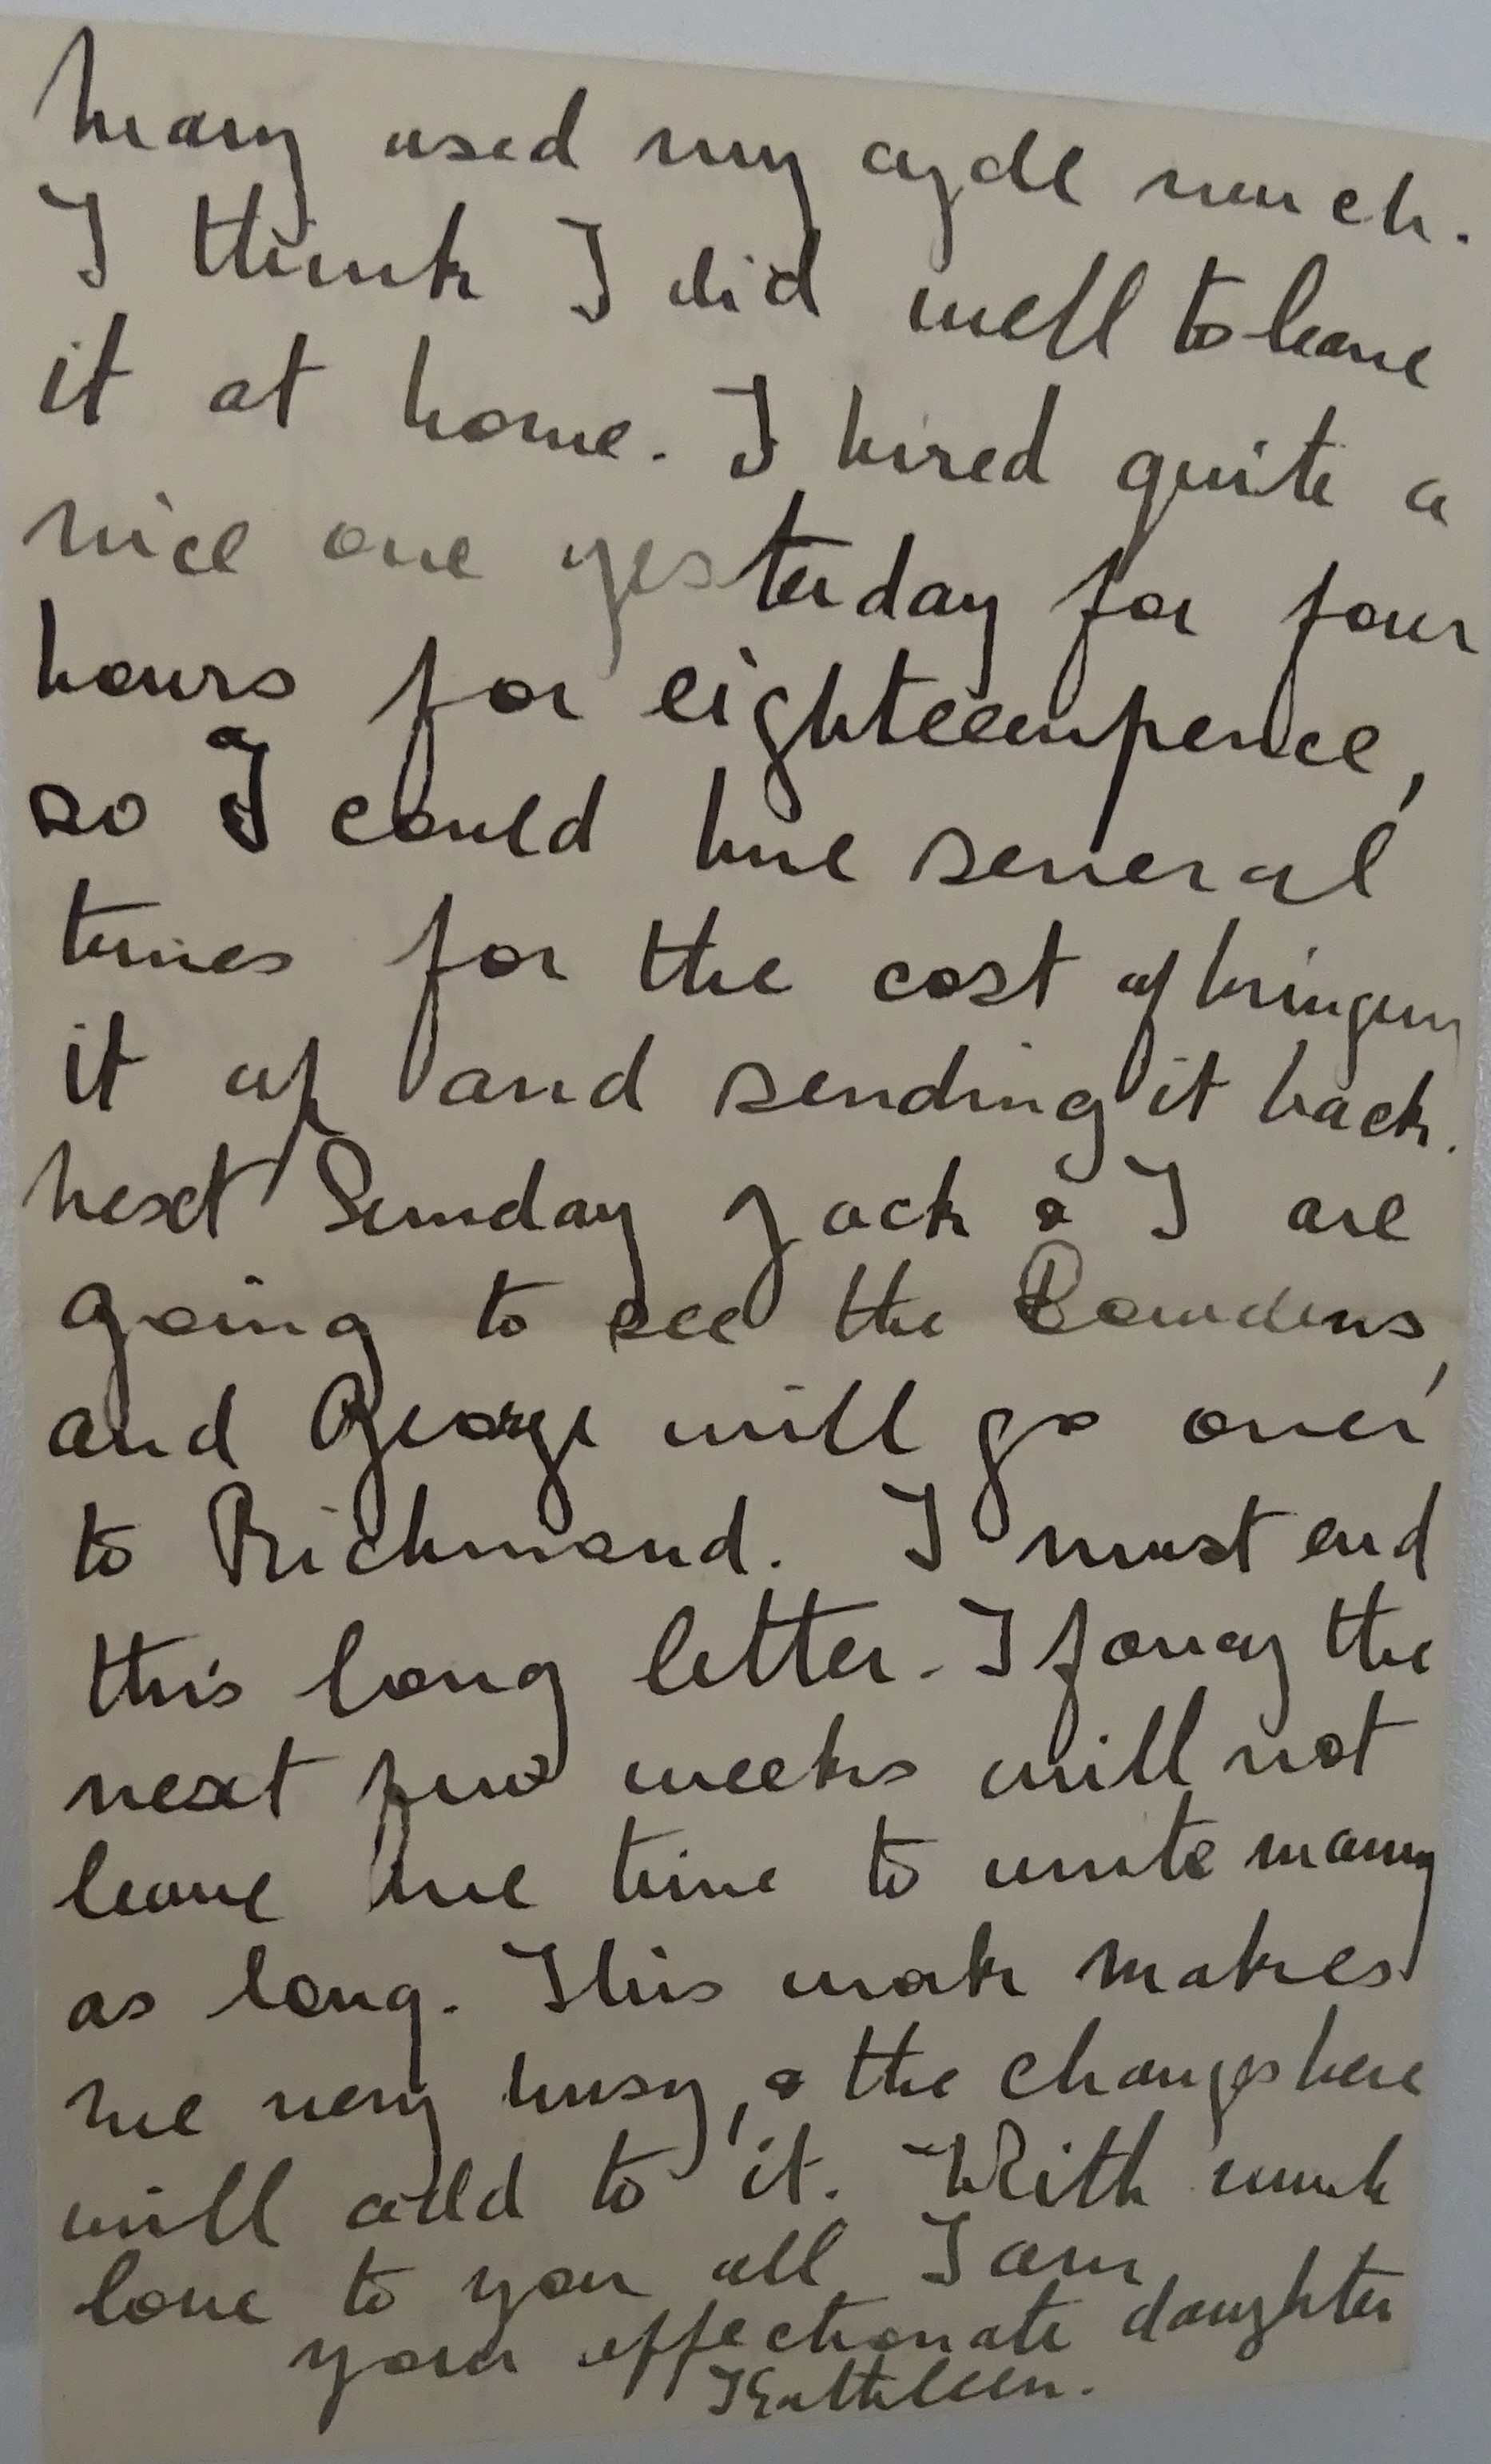 Mary used my cycle much.
I think I did well to leave
it at home. I hired quite a
nice one yesterday for four
hours for eighteenpence,
so I could hire several
times for the cost of bringing
it up and sending it back.
Next Sunday Jack & I are
going to see the Bowdens,
and George will go over
to Richmond. I must end
this long letter. I fancy the
next few weeks will not
leave me time to write many
as long. This work makes
me very busy, & the changes here
will add to it. With much
love to you all I am,
your affectionate daughter
Kathleen.